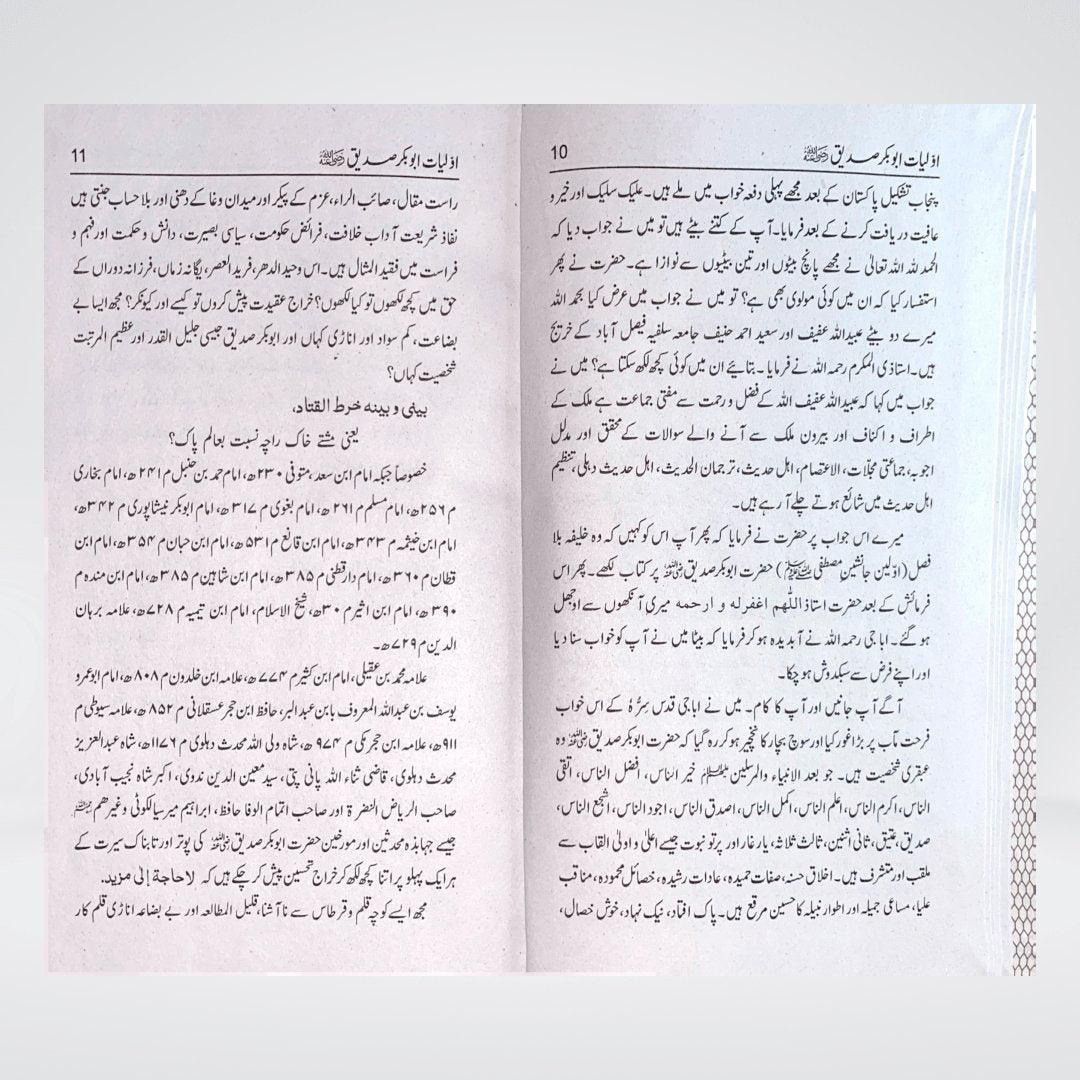 اوّلیات ابوبکر صدیق رضی اللہ عنہ 10
پنجاب تشکیل پاکستان کے بعد مجھے پہلی دفعہ خواب میں ملے ہیں۔ علیک سلیک اور خیر و
عافیت دریافت کرنے کے بعد فرمایا۔ آپ کے کتنے بیٹے ہیں تو میں نے جواب دیا کہ
الحمد للہ اللہ تعالیٰ نے مجھے پانچ بیٹوں اور تین بیٹیوں سے نوازا ہے۔ حضرت نے پھر
استفسار کیا کہ ان میں کوئی مولوی بھی ہے؟ تو میں نے جواب میں عرض کیا بحمد اللہ
میرے دو بیٹے عبیداللہ عفیف اور سعید احمد حنیف جامعہ سلفیہ فیصل آباد کے خریج
ہیں۔ استاذی المکرم رحمہ اللہ نے فرمایا۔ بتائیے ان میں کوئی کچھ لکھ سکتا ہے؟ میں نے
جواب میں کہا کہ عبیداللہ عفیف اللہ کے فضل و رحمت سے مفتی جماعت ہے ملک کے
اطراف و اکناف اور بیرون ملک سے آنے والے سوالات کے محقق اور مدلل
اجوبہ، جماعتی مجلّات، الاعتصام، اہل حدیث، ترجمان الحدیث، اہل حدیث دہلی، تنظیم
اہل حدیث میں شائع ہوتے چلے آ رہے ہیں۔
میرے اس جواب پر حضرت نے فرمایا کہ پھر آپ اس کو کہیں کہ وہ خلیفہ بلا
فصل (اوّلین جانشین مصطفی ﷺ) حضرت ابوبکر صدیق رضی اللہ عنہ پر کتاب لکھے۔ پھر اس
فرمائش کے بعد حضرت استاذ اللّٰھم اغفرلہ و ارحمہ میری آنکھوں سے اوجھل
ہو گئے۔ ابا جی رحمہ اللہ نے آبدیدہ ہو کر فرمایا کہ بیٹا میں نے آپ کو خواب سنا دیا
اور اپنے فرض سے سبکدوش ہو چکا۔
آگے آپ جانیں اور آپ کا کام۔ میں نے ابا جی قدس سِرُّہٗ کے اس خواب
فرحت آب پر بڑا غور کیا اور سوچ بچار کا نخچیر ہو کر رہ گیا کہ حضرت ابوبکر صدیق رضی اللہ عنہ وہ
عبقری شخصیت ہیں۔ جو بعد الانبیاء والمرسلین خیر الناس، افضل الناس، اتقی
الناس، اکرم الناس، اعلم الناس، اکمل الناس، اصدق الناس، اجود الناس، اشجع الناس،
صدیق، عتیق، ثانی اثنین، ثالث ثلاثہ، یار غار اور پرتو نبوت جیسے اعلیٰ و اولیٰ القاب سے
ملقب اور متشرف ہیں۔ اخلاق حسنہ، صفات حمیدہ، عادات رشیدہ، خصائل محمودہ، مناقب
علیا، مساعی جمیلہ اور اطوار نبیلہ کا حسین مرقع ہیں۔ پاک افتاد، نیک نہاد، خوش خصال،
اوّلیات ابوبکر صدیق رضی اللہ عنہ 11
راست مقال، صائب الراء، عزم کے پیکر اور میدان وغا کے دھنی اور بلا حساب جنتی ہیں
نفاذ شریعت آداب خلافت، فرائض حکومت، سیاسی بصیرت، دانش و حکمت اور فہم و
فراست میں فقید المثال ہیں۔ اس وحید الدھر، فرید العصر، یگانہ زماں، فرزانہ دوراں کے
حق میں کچھ لکھوں تو کیا لکھوں؟ خراج عقیدت پیش کروں تو کیسے اور کیونکر؟ مجھ ایسا بے
بضاعت، کم سواد اور اناڑی کہاں اور ابوبکر صدیق جیسی جلیل القدر اور عظیم المرتبت
شخصیت کہاں؟
بیني و بینه خرط القتاد،
یعنی مشتے خاک راچہ نسبت بعالم پاک؟
خصوصاً جبکہ امام ابن سعد، متوفی ۲۳۰ھ، امام حمد بن حنبل م ۲۴۱ ھ، امام بخاری
م ۲۵۶ھ، امام مسلم م ۲۶۱ ھ، امام بغوی م ۳۱۷ ھ، امام ابوبکر نیشاپوری م ۳۴۲ ھ،
امام ابن خیثمہ م ۳۴۳ ھ، امام ابن قانع م ۵۳۱ ھ، امام ابن حبان م ۳۵۴ ھ، امام ابن
قطان م ۳۶۰ ھ، امام دار قطنی م ۳۸۵ ھ، امام ابن شاہین م ۳۸۵ ھ، امام ابن مندہ م
۳۹۰ ھ، امام ابن اثیر م ۳۰ ھ، شیخ الاسلام، امام ابن تیمیہ م ۷۲۸ ھ، علامہ برہان
الدین م ۷۲۹ ھ۔
علامہ محمد بن عقیلی، امام ابن کثیر م ۷۷۴ ھ، علامہ ابن خلدون م ۸۰۸ ھ، امام ابو عمرو
یوسف بن عبداللہ المعروف بابن عبد البر، حافظ ابن حجر عسقلانی م ۸۵۲ ھ، علامہ سیوطی م
۹۱۱ ھ، علامہ ابن حجر مکی م ۹۷۴ ھ، شاہ ولی اللہ محدث دہلوی م ۱۱۷۶ ھ، شاہ عبدالعزیز
محدث دہلوی، قاضی ثناء اللہ پانی پتی، سید معین الدین ندوی، اکبر شاہ نجیب آبادی،
صاحب الریاض النضرۃ اور صاحب اتمام الوفا حافظ، ابراہیم میر سیالکوٹی وغیرھم
جیسے جہابذہ محدثین اور مورخین حضرت ابوبکر صدیق رضی اللہ عنہ کی پوتر اور تابناک سیرت کے
ہر ایک پہلو پر اتنا کچھ لکھ کر خراج تحسین پیش کر چکے ہیں کہ لاحاجة إلى مزيد.
مجھ ایسے کوچہ قلم و قرطاس سے نا آشنا، قلیل المطالعہ اور بے بضاعہ اناڑی قلم کار